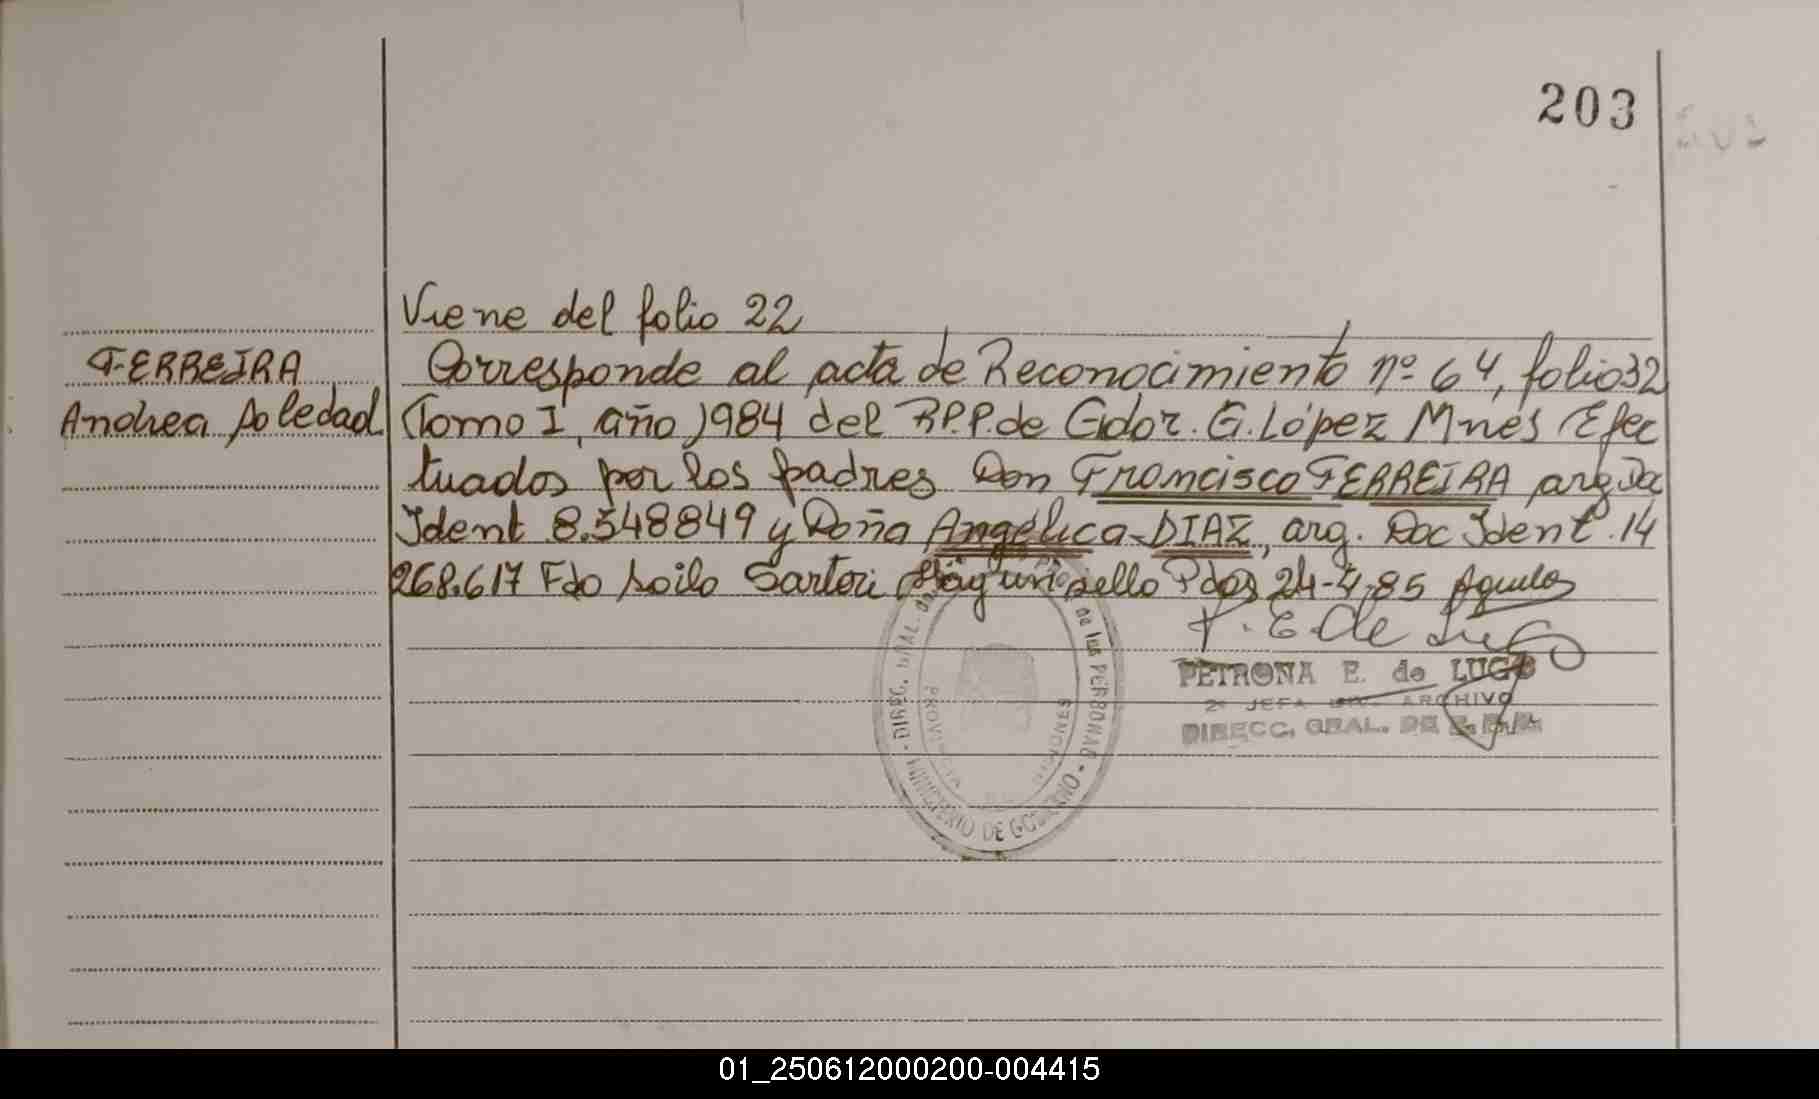 203
Viene del folio 22
FERREIRA
Andrea Soledad
Corresponde al acta de Reconocimiento nº 64, folio 32
Tomo I, año 1984 del R.P.P. de Gdor. G. López Mnes Efec
tuados por los padres Don Francisco FERREIRA arg Doc
Ident 8.548849 y Doña Angélica DIAZ, arg. Doc Ident. 14
268.617 Fdo Soilo Sartori Hay un sello Pdos 24-4-85
PETRONA E. de LUGO
2º JEFA ARCHIVO
DIRECC. GRAL. DE
DIREC. GRAL. de las PERSONAS - MINISTERIO DE GOBIERNO
PROVINCIA MISIONES
01_250612000200-004415